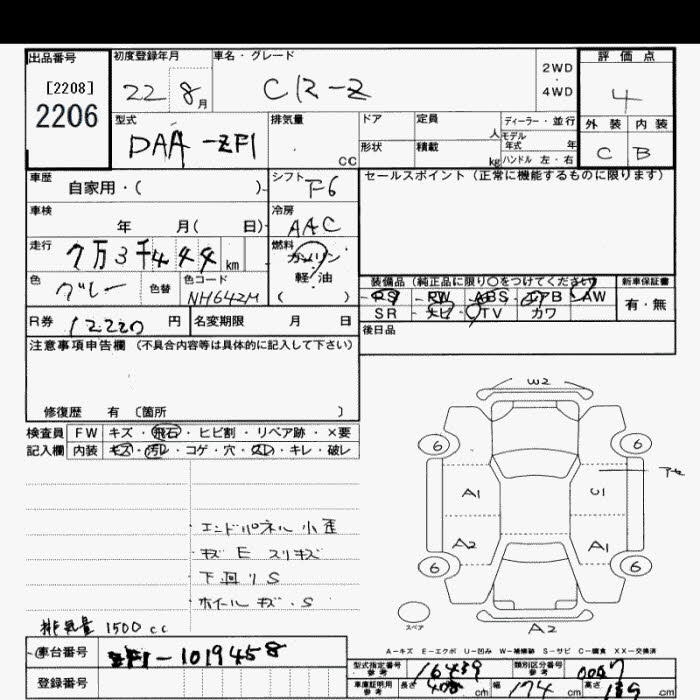 出品番号 初度登録年月 車名・グレード 評価点
[2208] 22 8月 CR-Z 2WD・4WD 4
2206 型式 排気量 ドア 定員 人 ディーラー・並行 外装 内装
DAA-ZF1 cc 形状 積載 kg モデル年式 年 C B
ハンドル 左・右
車歴 自家用・( ) シフト F6 セールスポイント (正常に機能するものに限ります)
車検 年 月( 日) 冷房 AAC
走行 7万3千444km 燃料 ガソリン
軽・油
( )
色 グレー 色替 色コード NH642M
装備品 (純正品に限り〇をつけてください) 新車保証書
PS・PW・ABS・エアB・AW 有・無
SR・ナビ・TV・カワ
R券 12220 円 名変期限 月 日
後日品
注意事項申告欄 (不具合内容等は具体的に記入して下さい)
修復歴 有 〔箇所 〕
検査員 FW キズ・飛石・ヒビ割・リペア跡・×要
記入欄 内装 キズ・汚レ・コゲ・穴・スレ・キレ・破レ
W2
6 6
A1 U1
A2 A1
6 6
スペア A2
エンドパネル小歪
キズ E スリキズ
下廻り S
ホイールキズ・S
排気量 1500cc
A-キズ E-エクボ U-凹み W-補修跡 S-サビ C-腐食 XX-交換済
車台番号 ZF1-1019458
登録番号
型式指定番号 参考 16439 類別区分番号 参考 0007
車庫証明用 参考 長さ 408 cm 幅 174 cm 高さ 139 cm